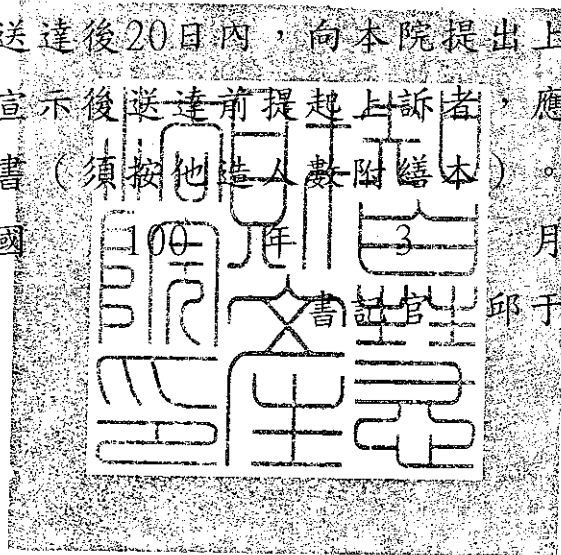 送達後20日內，向本院提出上
宣示後送達前提起上訴者，應
書（須按他造人數附繕本）。
國 100 年 3 月
書記官 邱于
智慧
財產
法院印